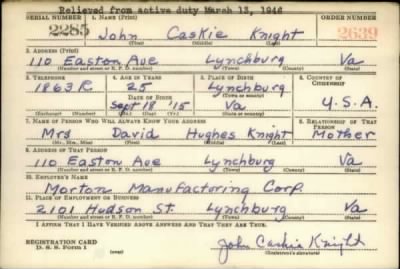 Relieved from active duty March 13, 1946
SERIAL NUMBER 1. NAME (Print) ORDER NUMBER
2285 John Caskie Knight 2639
(First) (Middle) (Last)
2. ADDRESS (Print)
110 Easton Ave Lynchburg Va
(Number and street or R. F. D. number) (Town) (County) (State)
3. TELEPHONE 4. AGE IN YEARS 5. PLACE OF BIRTH 6. COUNTRY OF CITIZENSHIP
1863 R. 25 Lynchburg
DATE OF BIRTH (Town or county)
Sept 18 '15 Va U.S.A.
(Exchange) (Number) (Mo.) (Day) (Yr.) (State or country)
7. NAME OF PERSON WHO WILL ALWAYS KNOW YOUR ADDRESS 8. RELATIONSHIP OF THAT PERSON
Mrs David Hughes Knight Mother
(Mr., Mrs., Miss) (First) (Middle) (Last)
9. ADDRESS OF THAT PERSON
110 Easton Ave Lynchburg Va
(Number and street or R. F. D. number) (Town) (County) (State)
10. EMPLOYER'S NAME
Morton Manufactoring Corp.
11. PLACE OF EMPLOYMENT OR BUSINESS
2101 Hudson St. Lynchburg Va
(Number and street or R. F. D. number) (Town) (County) (State)
I AFFIRM THAT I HAVE VERIFIED ABOVE ANSWERS AND THAT THEY ARE TRUE.
REGISTRATION CARD
D. S. S. Form 1 John Caskie Knight
(Registrant's signature)